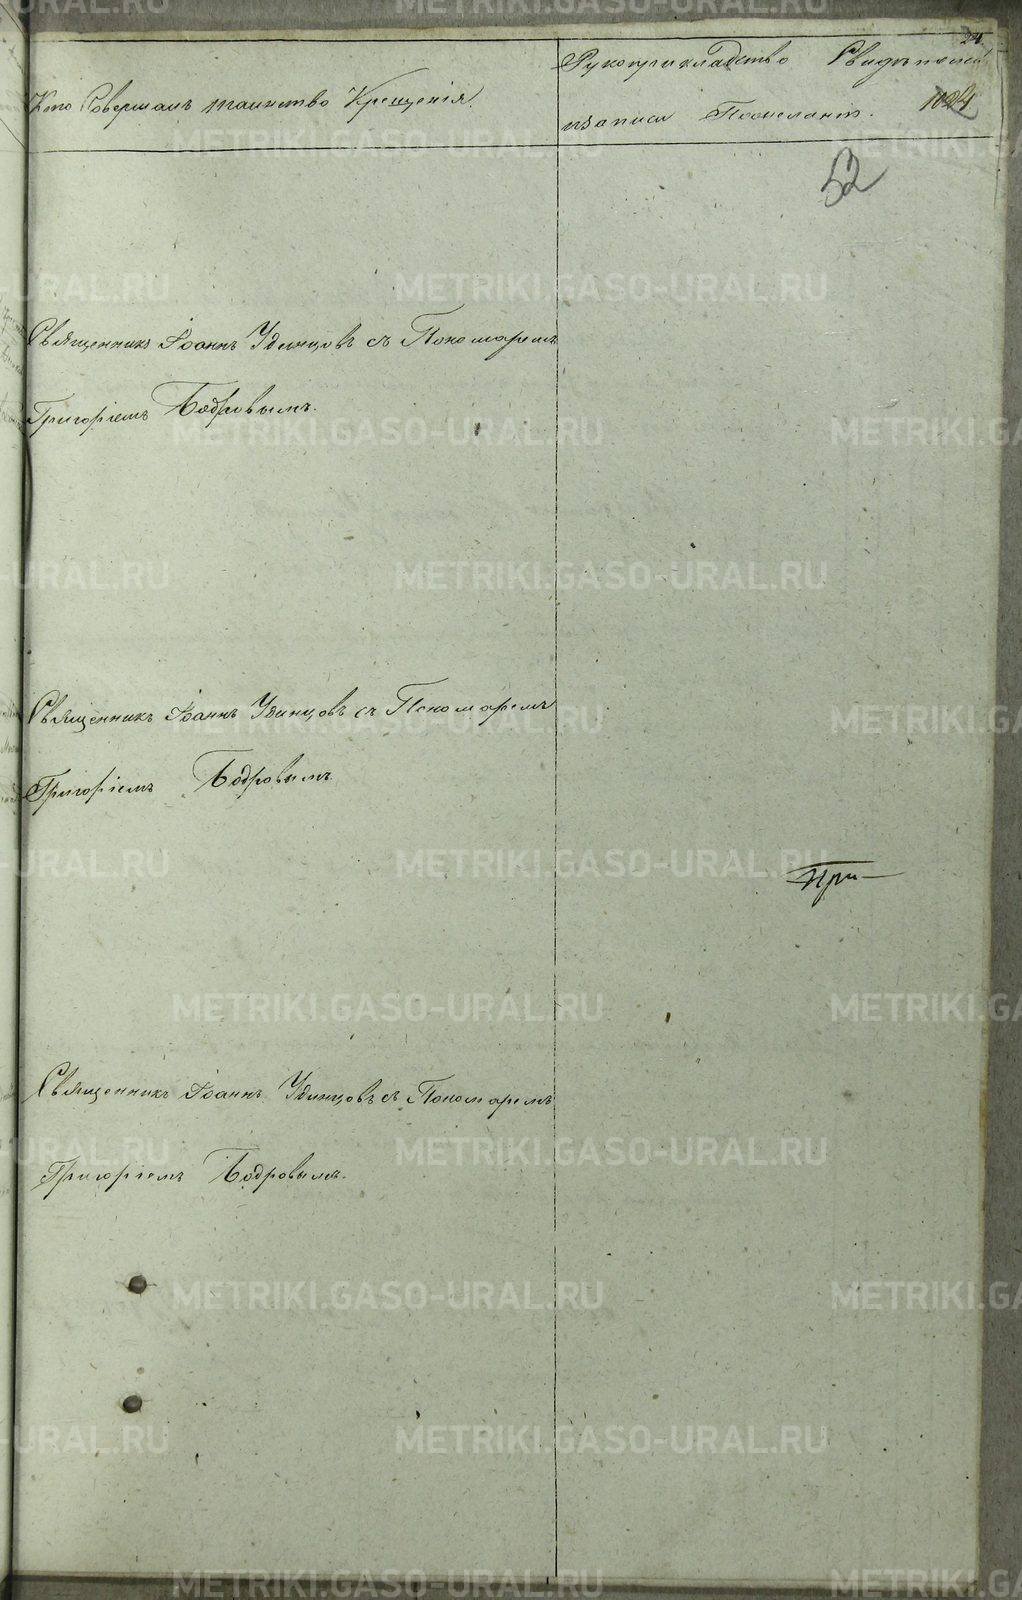 24.
Кто Совершалъ таинство Крещенія.
Рукоприкладство Свидѣтелей
записи По желанію.
1024
52
Священникъ Іоаннъ Удинцовъ съ Пономаремъ
Григоріемъ Бодровымъ.
Священникъ Іоаннъ Удинцовъ съ Пономаремъ
Григоріемъ Бодровымъ
При—
Священникъ Іоаннъ Удинцовъ съ Пономаремъ
Григоріемъ Бодровымъ.
METRIKI.GASO-URAL.RU